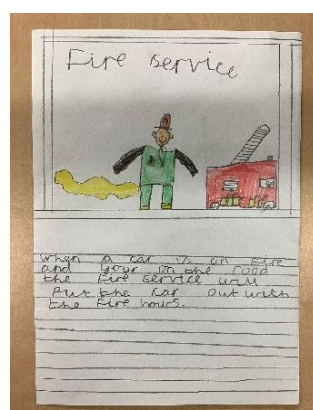 Fire service
when a car is on fire
and your on the road
the fire service will
Put the car out with
the fire hours.